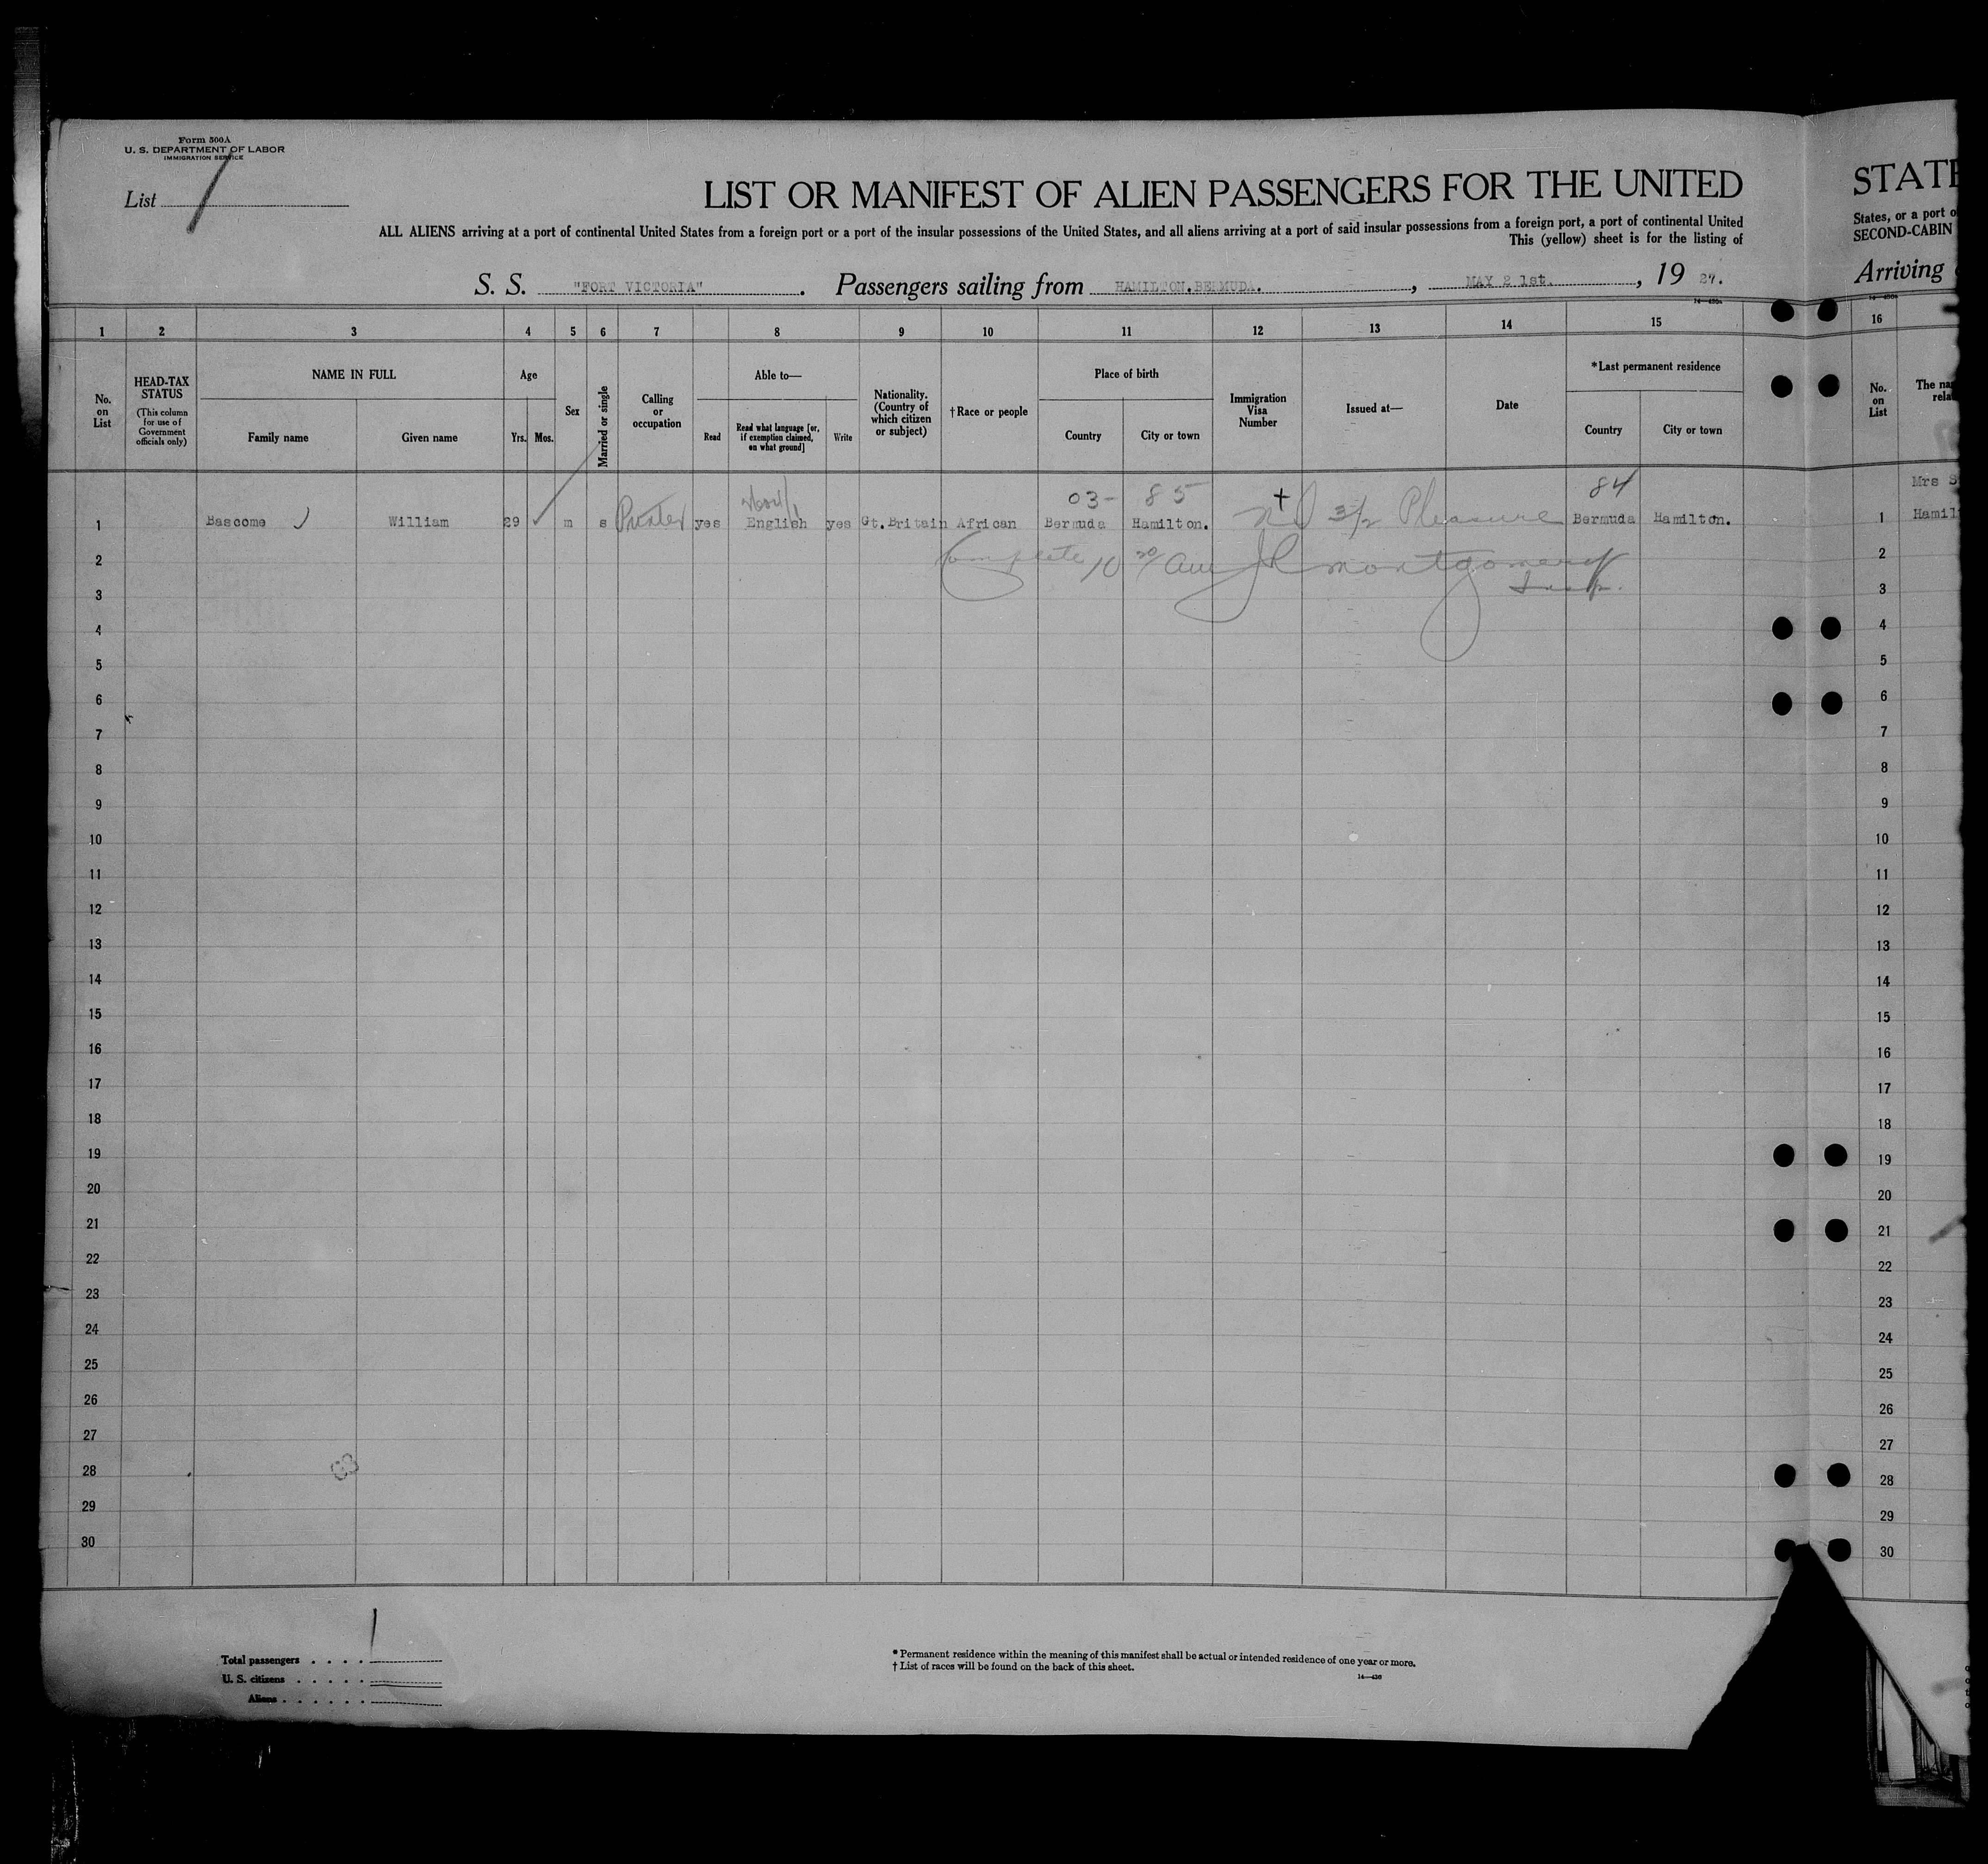 Form 500A
U. S. DEPARTMENT OF LABOR
IMMIGRATION SERVICE
List 1
LIST OR MANIFEST OF ALIEN PASSENGERS FOR THE UNITED
ALL ALIENS arriving at a port of continental United States from a foreign port or a port of the insular possessions of the United States, and all aliens arriving at a port of said insular possessions from a foreign port, a port of continental United
This (yellow) sheet is for the listing of
S. S. "FORT VICTORIA". Passengers sailing from HAMILTON.BERMUDA., MAY 21st., 1927.
STATE
States, or a port o
SECOND-CABIN
Arriving
1 2 3 4 5 6 7 8 9 10 11 12 13 14 15 16
No. on List
HEAD-TAX STATUS
(This column for use of Government officials only)
NAME IN FULL
Family name
Given name
Age
Yrs.
Mos.
Sex
Married or single
Calling or occupation
Able to—
Read
Read what language [or, if exemption claimed, on what ground]
Write
Nationality. (Country of which citizen or subject)
†Race or people
Place of birth
Country
City or town
Immigration Visa Number
Issued at—
Date
*Last permanent residence
Country
City or town
No. on List
The na
rela
03- 85 84
1 Bascome William 29 m s Printer yes English yes Gt.Britain African Bermuda Hamilton. 3/2 Pleasure Bermuda Hamilton.
1 Mrs S
Hamil
Complete 10 20/ am JR Montgomery
Insp.
2 2
3 3
4 4
5 5
6 6
7 7
8 8
9 9
10 10
11 11
12 12
13 13
14 14
15 15
16 16
17 17
18 18
19 19
20 20
21 21
22 22
23 23
24 24
25 25
26 26
27 27
28 28
29 29
30 30
Total passengers . . . . 1
U. S. citizens . . . . .
Aliens . . . . . .
* Permanent residence within the meaning of this manifest shall be actual or intended residence of one year or more.
† List of races will be found on the back of this sheet.
14—436